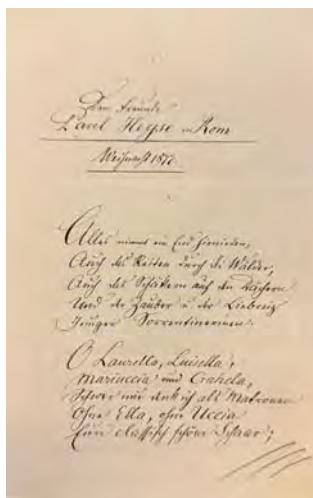 Dem Freunde
Paul Heyse in Rom
Weihnacht 1877
Alles nimmt ein End hienieden,
Auch das Reiten durch die Wälder,
Auch das Schäkern auf den Dächern
Und der Zauber u. der Liebreiz
Jener Sorrentinerinnen.
O Lauretta, Luisella,
Mariuccia und
Schwer nur denk ich als Matronen
Ohne Ella, ohne Uccia
Eure classisch schöne Schaar;